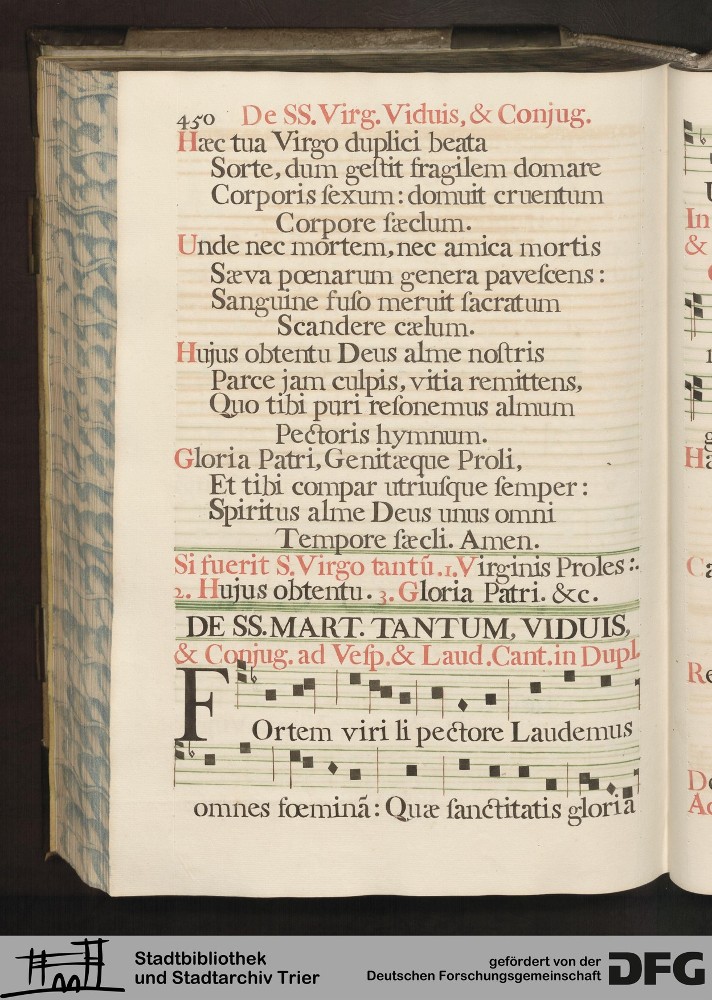 450 De SS. Virg. Viduis, & Conjug.
Hæc tua Virgo duplici beata
Sorte, dum geſtit fragilem domare
Corporis ſexum: domuit cruentum
Corpore ſæclum.
Unde nec mortem, nec amica mortis
Sæva pœnarum genera paveſcens:
Sanguine fuſo meruit ſacratum
Scandere cælum.
Hujus obtentu Deus alme noſtris
Parce jam culpis, vitia remittens,
Quo tibi puri reſonemus almum
Pectoris hymnum.
Gloria Patri, Genitæque Proli,
Et tibi compar utriuſque ſemper:
Spiritus alme Deus unus omni
Tempore ſæcli. Amen.
Si fuerit S. Virgo tantũ. 1. Virginis Proles:.
2. Hujus obtentu. 3. Gloria Patri. &c.
DE SS. MART. TANTUM, VIDUIS,
& Conjug. ad Veſp. & Laud. Cant. in Dupl.
FOrtem viri li pectore Laudemus
omnes fœminã: Quæ ſanctitatis gloriã
Stadtbibliothek
und Stadtarchiv Trier
gefördert von der
Deutschen Forschungsgemeinschaft
DFG